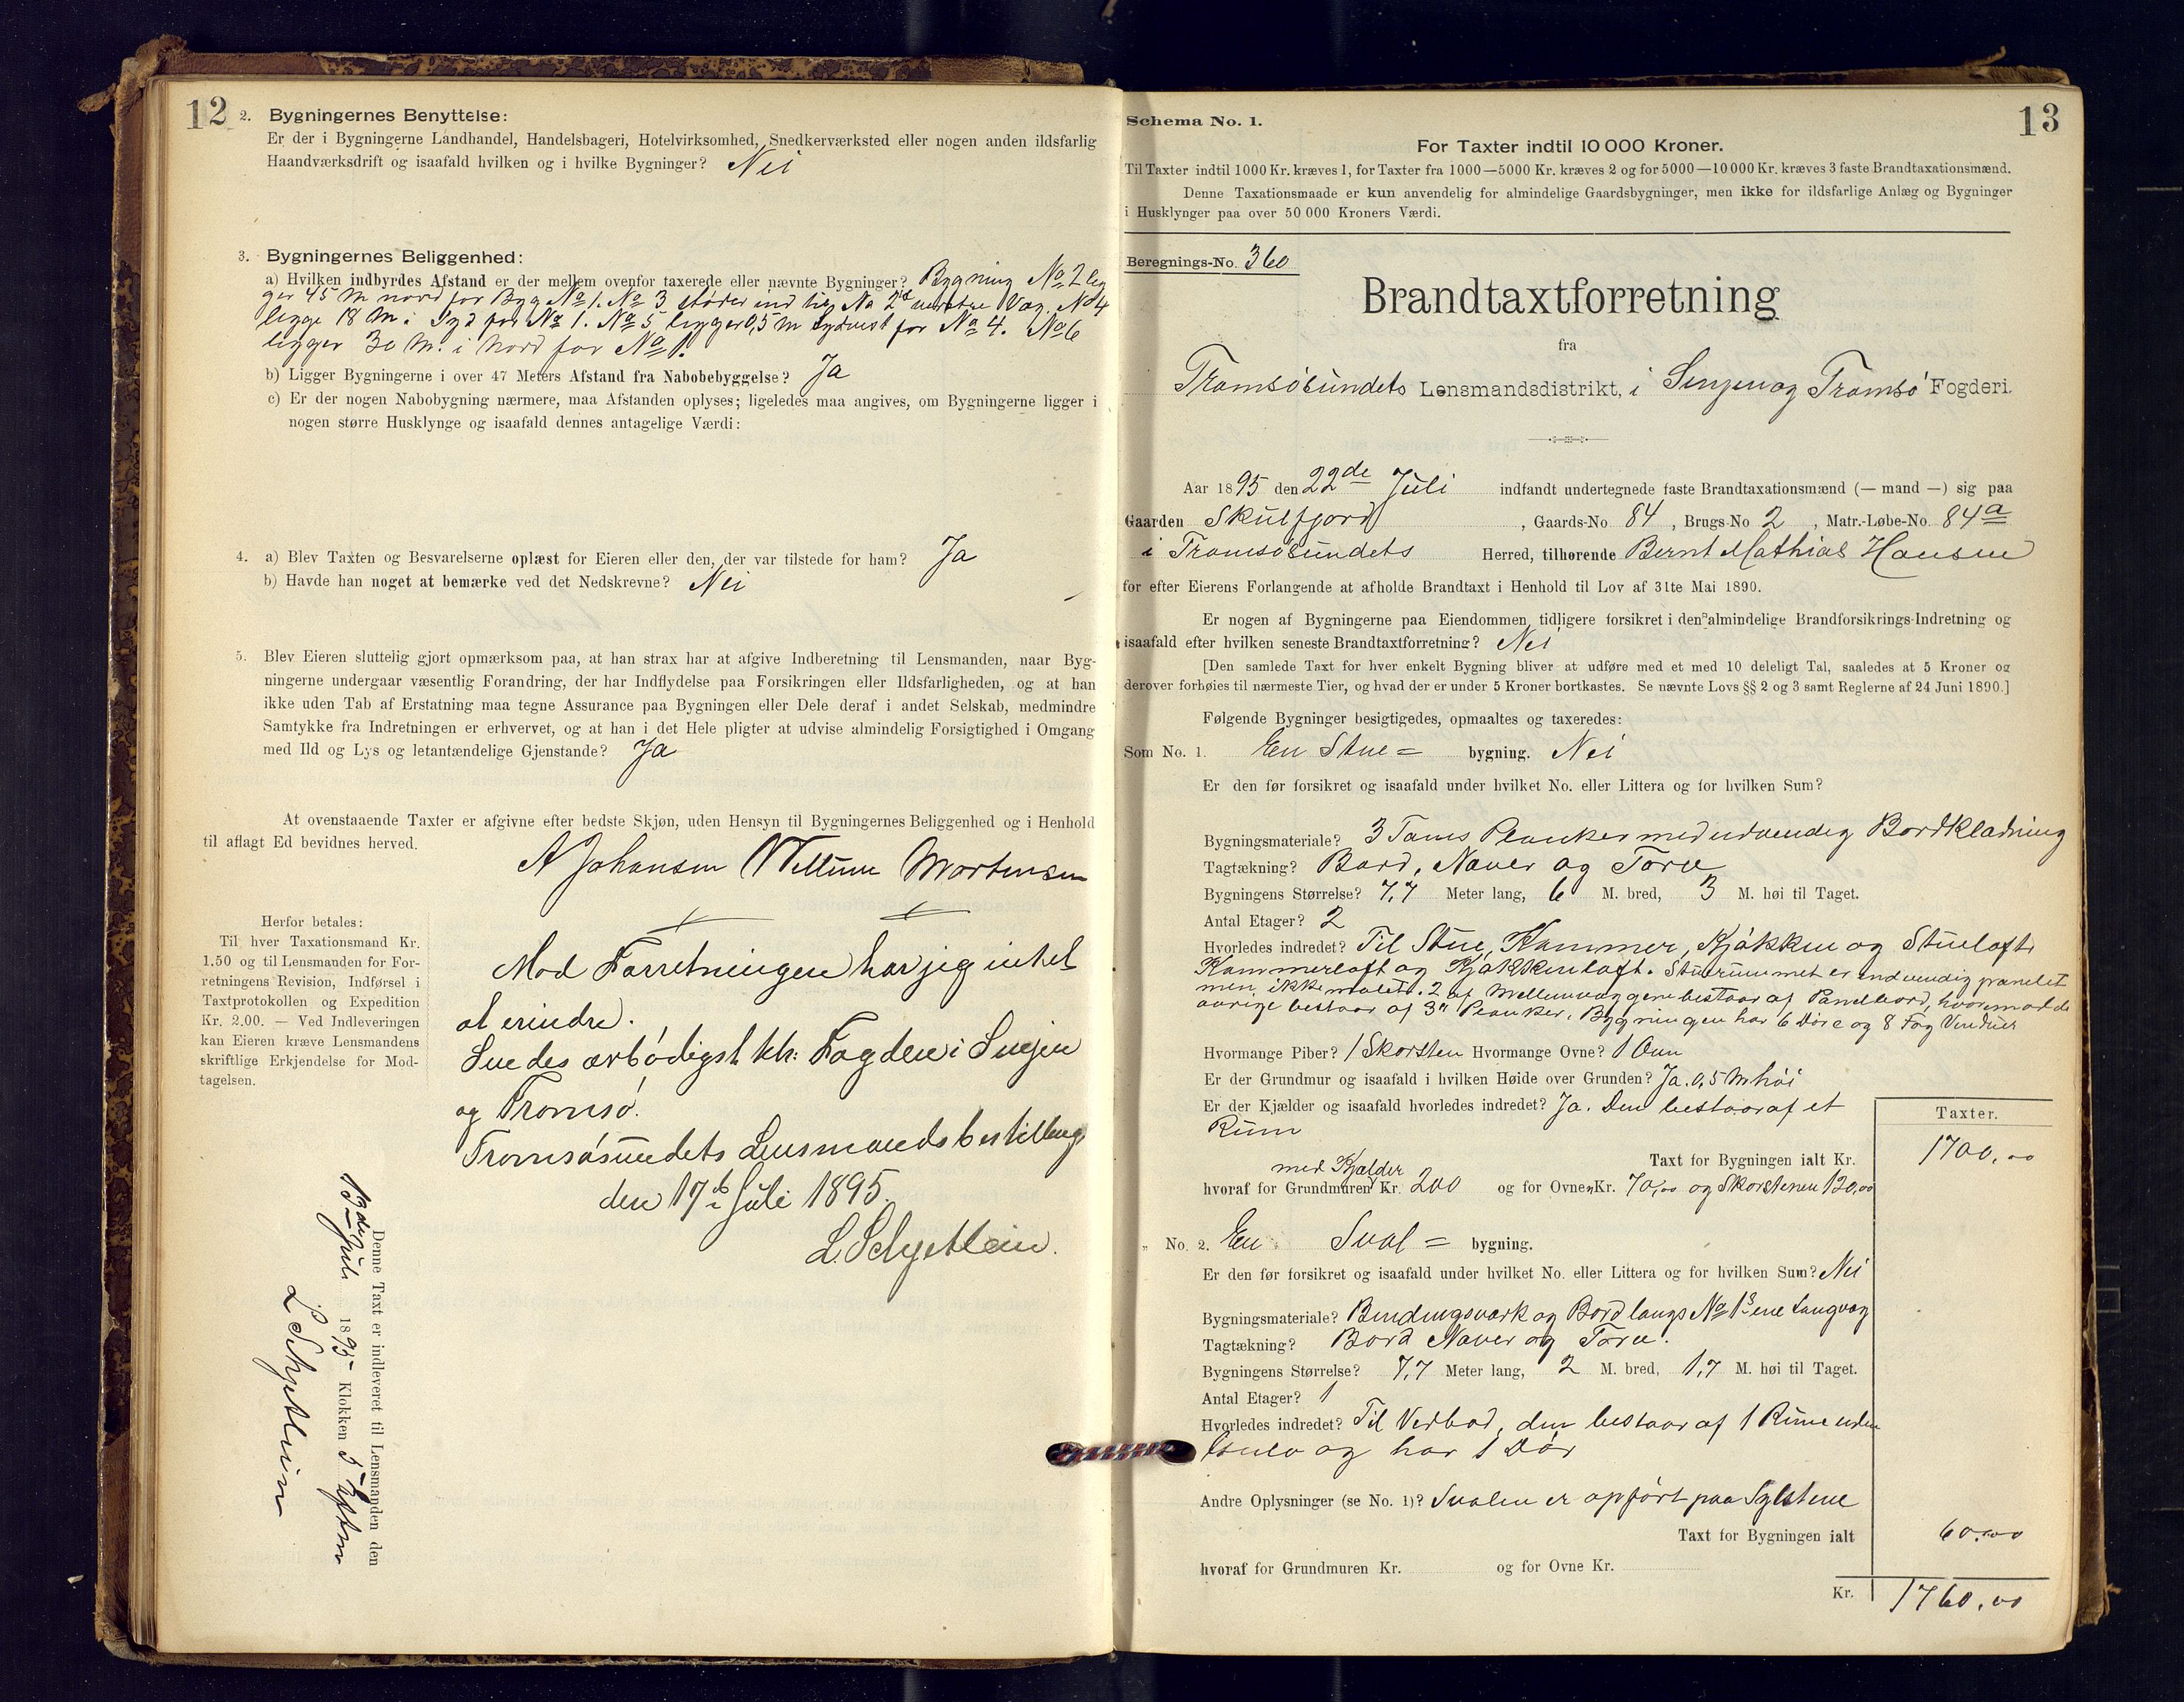 12
2. Bygningernes Benyttelse:
Er der i Bygningerne Landhandel, Handelsbageri, Hotelvirksomhed, Snedkerværksted eller nogen anden ildsfarlig
Haandværksdrift og isaafald hvilken og i hvilke Bygninger? Nei
3. Bygningernes Beliggenhed:
a) Hvilken indbyrdes Afstand er der mellem ovenfor taxerede eller nævnte Bygninger? Bygning No 2 lig
ger 45 M nord for Byg No 1. No 3 støder ind til No 2 Væg. No 4
ligge 18 M. i Syd for No 1. No 5 ligger 0,5 M sydvest for No 4. No 6
ligger 30 M. i Nord for No 1.
b) Ligger Bygningerne i over 47 Meters Afstand fra Nabobebyggelse? Ja
c) Er der nogen Nabobygning nærmere, maa Afstanden oplyses; ligeledes maa angives, om Bygningerne ligger i
nogen større Husklynge og isaafald dennes antagelige Værdi:
4. a) Blev Taxten og Besvarelserne oplæst for Eieren eller den, der var tilstede for ham? Ja
b) Havde han noget at bemærke ved det Nedskrevne? Nei
5. Blev Eieren sluttelig gjort opmærksom paa, at han strax har at afgive Indberetning til Lensmanden, naar Byg-
ningerne undergaar væsentlig Forandring, der har Indflydelse paa Forsikringen eller Ildsfarligheden, og at han
ikke uden Tab af Erstatning maa tegne Assurance paa Bygningen eller Dele deraf i andet Selskab, medmindre
Samtykke fra Indretningen er erhvervet, og at han i det Hele pligter at udvise almindelig Forsigtighed i Omgang
med Ild og Lys og letantændelige Gjenstande? Ja
At ovenstaaende Taxter er afgivne efter bedste Skjøn, uden Hensyn til Bygningernes Beliggenhed og i Henhold
til aflagt Ed bevidnes herved.
A Johansen Mortensen
Herfor betales:
Til hver Taxationsmand Kr.
1.50 og til Lensmanden for For-
retningens Revision, Indførsel i
Taxtprotokollen og Expedition
Kr. 2.00. — Ved Indleveringen
kan Eieren kræve Lensmandens
skriftlige Erkjendelse for Mod-
tagelsen.
Mod Forretningen har jeg intet
at erindre.
Sendes ærbødigst hr: Fogden i Senjen
og Tromsø.
Tromsøsundets Lensmandsbestilling
den 17de Juli 1895.
L. Schjetlein.
Denne Taxt er indleveret til Lensmanden den
13de Juli 1895 Klokken 5 Eftm
L Schjetlein
13
Schema No. 1.
For Taxter indtil 10 000 Kroner.
Til Taxter indtil 1000 Kr. kræves 1, for Taxter fra 1000—5000 Kr. kræves 2 og for 5000—10 000 Kr. kræves 3 faste Brandtaxationsmænd.
Denne Taxationsmaade er kun anvendelig for almindelige Gaardsbygninger, men ikke for ildsfarlige Anlæg og Bygninger
i Husklynger paa over 50 000 Kroners Værdi.
Beregnings-No. 360
Brandtaxtforretning
fra
Tromsøsundets Lensmandsdistrikt, i Senjen og Tromsø Fogderi.
Aar 1895 den 22de Juli indfandt undertegnede faste Brandtaxationsmænd (— mand —) sig paa
Gaarden Skulfjord, Gaards-No 84, Brugs-No 2, Matr.-Løbe-No. 84a
i Tromsøsundets Herred, tilhørende Bernt Mathias Hansen
for efter Eierens Forlangende at afholde Brandtaxt i Henhold til Lov af 31te Mai 1890.
Er nogen af Bygningerne paa Eiendommen tidligere forsikret i den almindelige Brandforsikrings-Indretning og
isaafald efter hvilken seneste Brandtaxtforretning? Nei
[Den samlede Taxt for hver enkelt Bygning bliver at udføre med et med 10 deleligt Tal, saaledes at 5 Kroner og
derover forhøies til nærmeste Tier, og hvad der er under 5 Kroner bortkastes. Se nævnte Lovs §§ 2 og 3 samt Reglerne af 24 Juni 1890.]
Følgende Bygninger besigtigedes, opmaaltes og taxeredes:
Som No. 1. En Stue= bygning. Nei
Er den før forsikret og isaafald under hvilket No. eller Littera og for hvilken Sum?
Bygningsmateriale? 3 Toms Planker med udvendig Bordklædning
Tagtækning? Bord, Næver og Torv
Bygningens Størrelse? 7,7 Meter lang, 6 M. bred, 3 M. høi til Taget.
Antal Etager? 2
Hvorledes indredet? Til Stue, Kammer, Kjøkken og Stueloft,
Kammerloft og Kjøkkenloft. Stuerummet er indvendig panelet
men ikke malet. 2 af Mellemvæggene bestaar af Panelbord, hvorimod de
øvrige bestaar af 3" Planker. Bygningen har 6 Døre og 8 Fag Vinduer
Hvormange Piber? 1 Skorsten Hvormange Ovne? 1 Ovn
Er der Grundmur og isaafald i hvilken Høide over Grunden? Ja. 0,5 M høi
Er der Kjælder og isaafald hvorledes indredet? Ja. Den bestaar af et
Rum
Taxter.
Taxt for Bygningen ialt Kr. 1700,00
med Kjælder
hvoraf for Grundmuren Kr. 200 og for Ovnen Kr. 70,00 og Skorstenen 130,00
" No. 2. En Sval= bygning.
Er den før forsikret og isaafald under hvilket No. eller Littera og for hvilken Sum? Nei
Bygningsmateriale? Bindingsværk og Bord langs No 1s ene Langvæg
Tagtækning? Bord Næver og Torv.
Bygningens Størrelse? 7,7 Meter lang, 2 M. bred, 1,7 M. høi til Taget.
Antal Etager? 1
Hvorledes indredet? Til Vedbod, den bestaar af 1 Rum uden
Gulv og har 1 Dør
Andre Oplysninger (se No. 1)? Svalen er opført paa Sylstene
Taxt for Bygningen ialt 60,00
hvoraf for Grundmuren Kr. og for Ovne Kr.
Kr. 1760,00